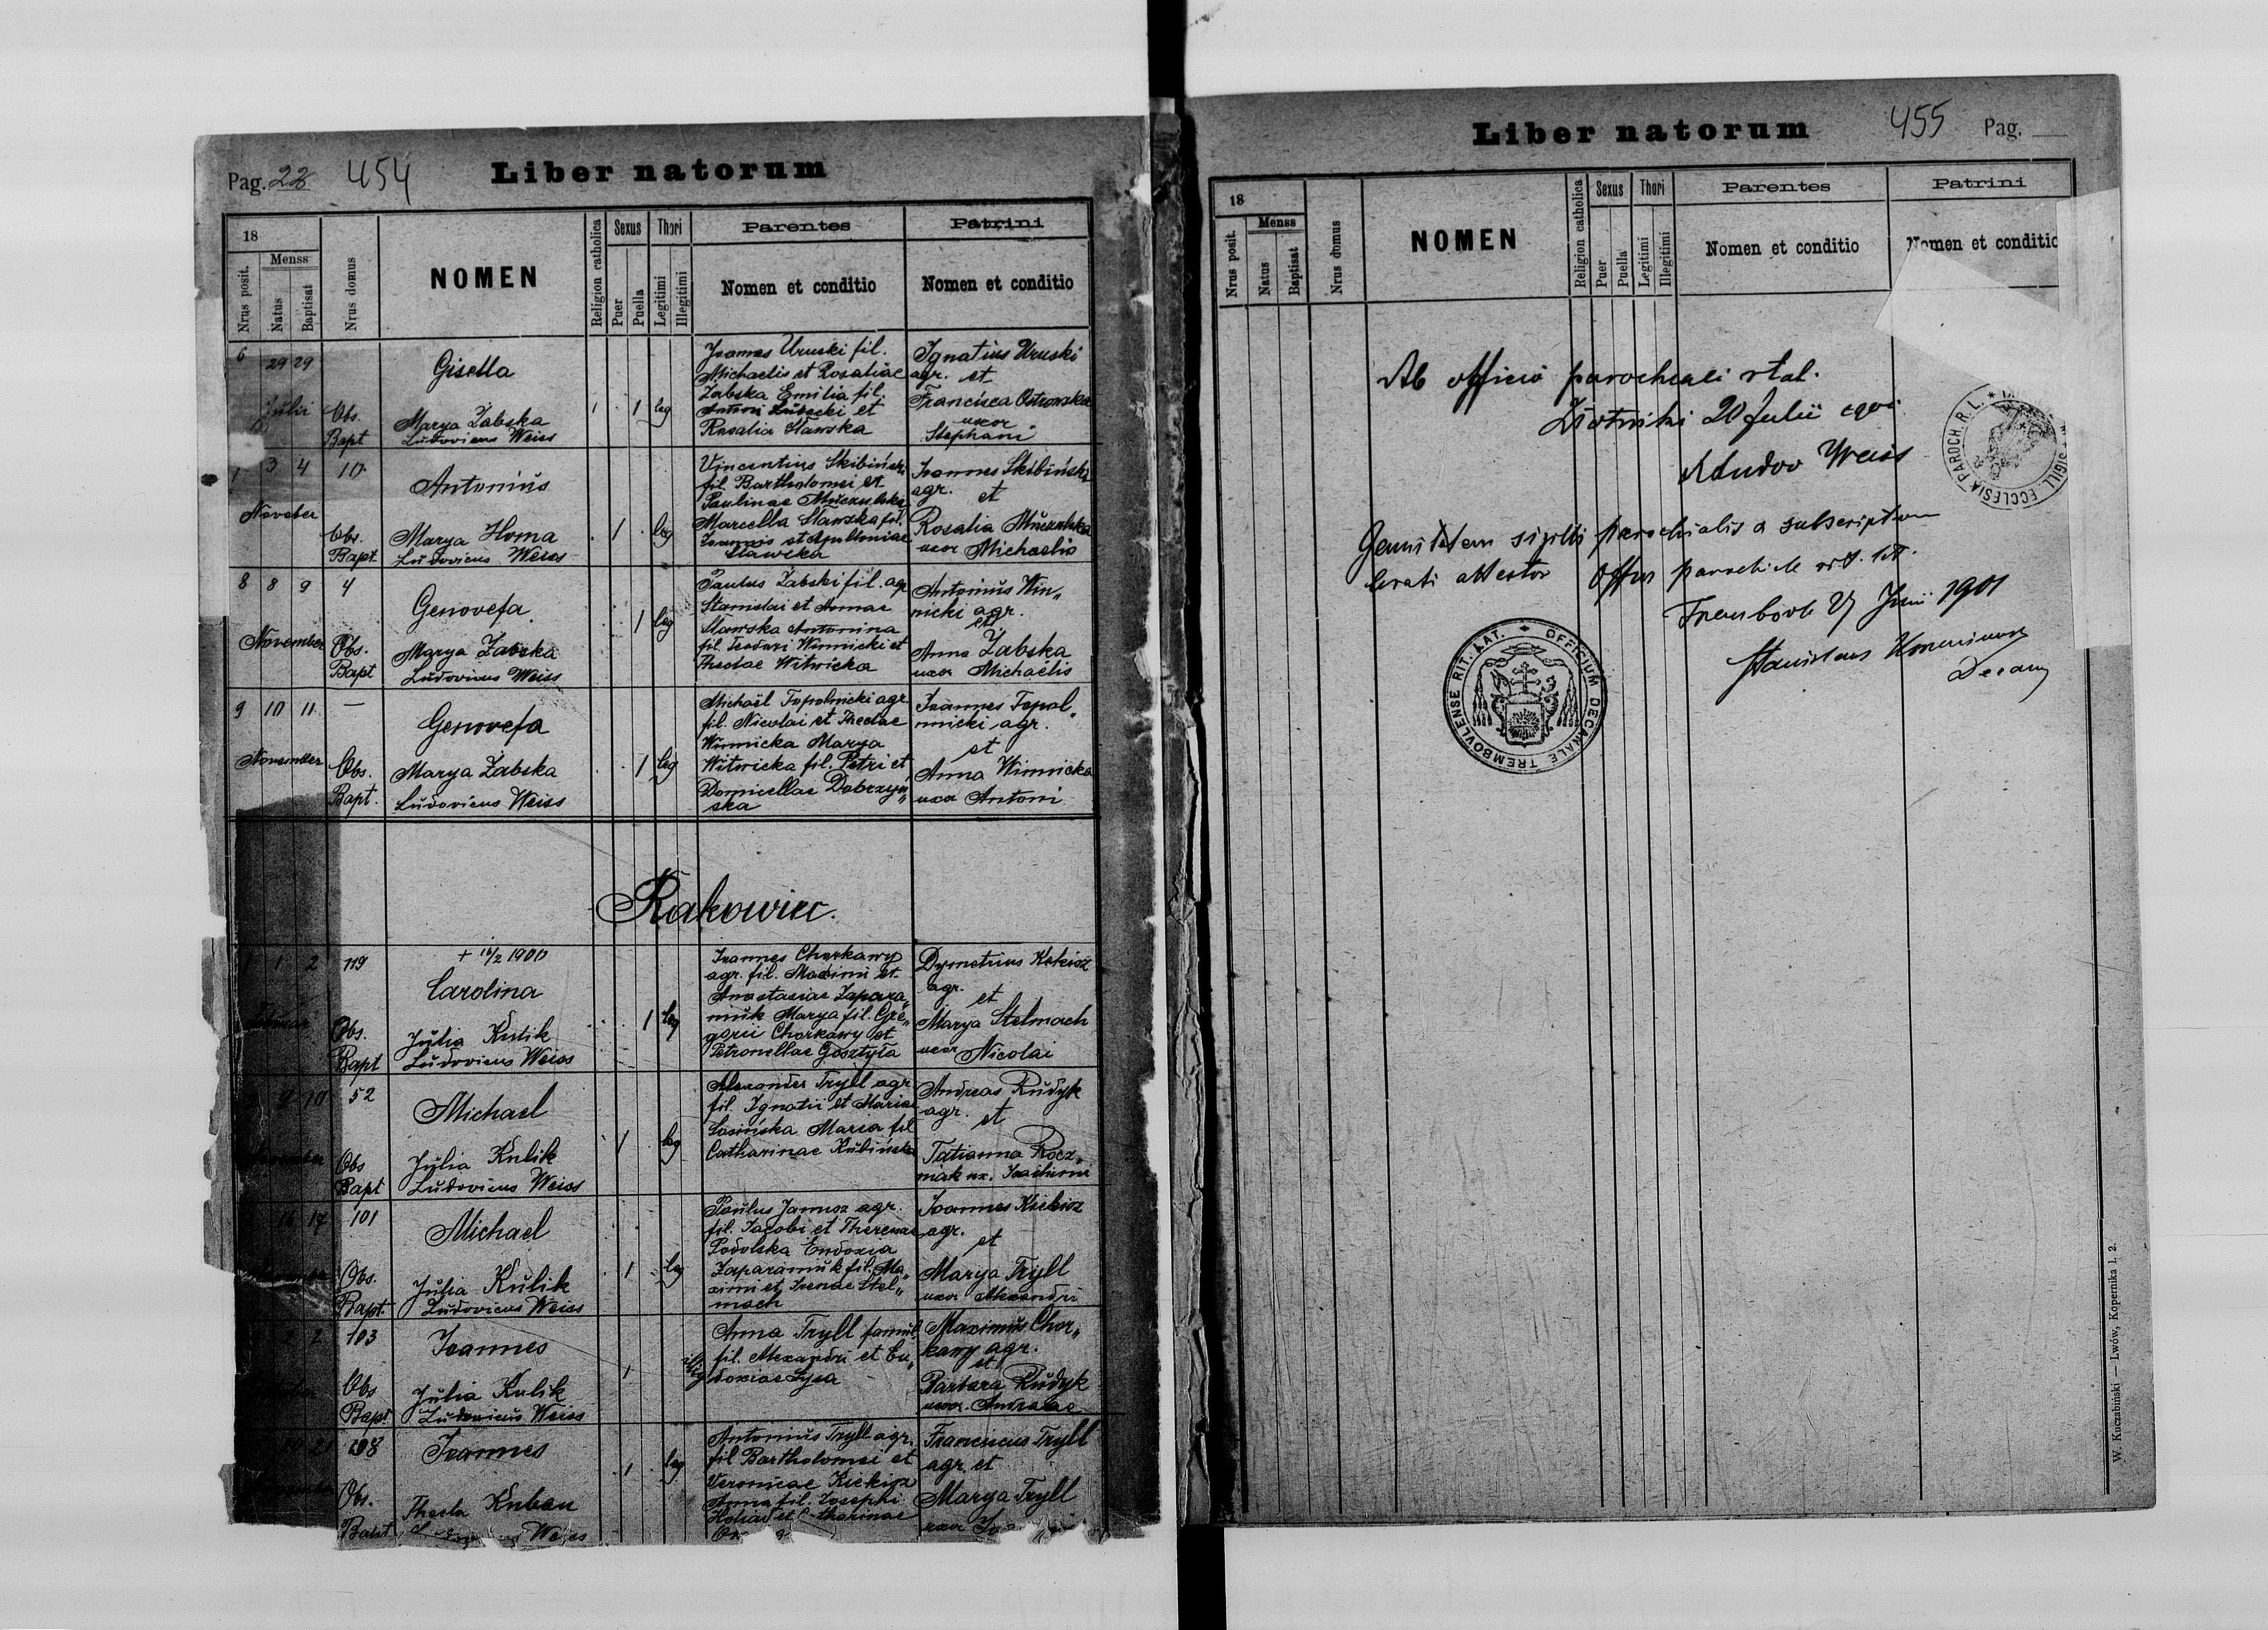 Pag. 22 454 Liber natorum
18
Menss
Nrus posit.
Natus
Baptisat
Nrus domus
NOMEN
Religion catholica
Sexus
Puer
Puella
Thori
Legitimi
Illegitimi
Parentes
Nomen et conditio
Patrini
Nomen et conditio
6 29 29
Julii
Gisella
Obs. Marya Żabska
Bapt Ludovicus Weiss
1 1 leg
Joannes Uruski fil.
Michaelis et Rosaliae
Żabska Emilia fil.
Antoni et
Rosalia Sławska
Ignatius Uruski
agr. et
Francisca Ostrowska
uxor
Stephani
3 4 10
Noveber
Antonius
Obs. Marya Homa
Bapt Ludovicus Weiss
1 leg
Vincentius Skibiński
fil. Bartholomei et
Paulinae
Marcella Sławska fil.
Joannis et Apolloniae
Sławska
Joannes Skibiński
agr. et
Rosalia
uxor Michaelis
8 8 9 4
November
Genovefa
Obs. Marya Żabska
Bapt Ludovicus Weiss
1 leg
Paulus Żabski fil. agr
Stanislai et Annae
Sławska Antonina
fil. Teodori Winnicki et
Theclae Witwicka
Antonius Win„
nicki agr.
et
Anna Żabska
uxor Michaelis
9 10 11 —
November
Genovefa
Obs. Marya Żabska
Bapt. Ludovicus Weiss
1 leg
Michaël Topolnicki agr
fil. Nicolai et Theclae
Winnicka Marya
Witwicka fil. Petri et
Domicellae Dobrzyń„
ska
Joannes Topol„
nnicki agr.
et
Anna Winnicka
uxor Antoni
Rakowiec.
1 1 2 119
Carolina
Obs. Julia Kulik
Bapt Ludovicus Weiss
1 leg
Joannes Chorkawy
agr. fil. Maximi et
Anastasiae Zapara„
niuk Marya fil. Gre„
gorii Chorkawy et
Petronellae Gosztyła
Dymetrius
agr.
et
Marya Stelmach
uxor Nicolai
9 10 52
Michael
Obs Julia Kulik
Bapt Ludovicus Weiss
1 leg
Alexander Tryll agr
fil. Ignatii et Mariae
Łosińska Maria fil
Catharinae Kubińska
Andreas Rudyk
agr. et
Tatianna Rocz„
niak ux. Joachimi
16 17 101
Michael
Obs. Julia Kulik
Bapt. Ludovicus Weiss
1 leg
Paulus Janusz agr.
fil. Jacobi et Theresiae
Podolska Eudoxia
Zaparaniuk fil. Ma„
ximi et Irenae Stel„
mach
Joannes Kiekisz
agr.
et
Marya Tryll
uxor Alexandri
2 103
Joannes
Obs Julia Kulik
Bapt Ludovicus Weiss
1 illeg
Anna Tryll famul.
fil. Alexandri et Eu„
doxiae Łysa
Maximus Chor„
kawy agr.
et
Barbara Rudyk
uxor. Andreae
21 108
Joannes
Obs. Thecla Kuban
Bapt Weiss
1 leg
Antonius Tryll agr.
fil Bartholomei et
Veronicae Kiekisz
Anna fil. Josephi
et Catharinae
Franciscus Tryll
agr. et
Marya Tryll
uxor
Liber natorum 455 Pag.
18
Menss
Nrus posit.
Natus
Baptisat
Nrus domus
NOMEN
Religion catholica
Sexus
Puer
Puella
Thori
Legitimi
Illegitimi
Parentes
Nomen et conditio
Patrini
Nomen et conditio
Ab officio parochiali r. lat.
Złotniki 20 Julii
Ludov Weiss
sigilli parochialis a subscriptum
attestor Offm parochiale rit. lat.
Trembowla Junii 1901
Stanislaus
Decanus
SIGILL. ECCLESIA PAROCH. R. L.
OFFICIUM DECANALE TREMBOVLENSE RIT. LAT.
W. Kuczabiński — Lwów, Kopernika l. 2.